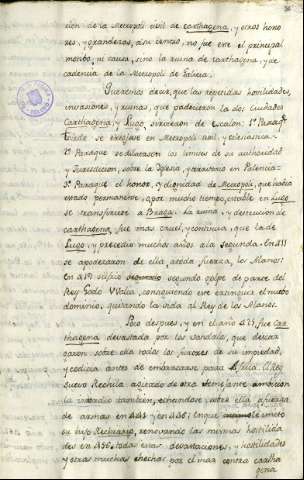 cion de la Metropoli civil de Carthagena, y otros hono
res, y grandezas, á su ciencio, no fue ese el principal
mundo, ni causa, sino la ruina de Carthagena, y de
cadencia de la Metropoli de Galicia.
Queremos decir, que las repetidas hostilidades,
invasiones, y ruinas, que padecieron la dos Ciudades
Carthagena, y Lugo, sirvieron de Escalon: 1º Paraq.e
Toledo se erigiese en Metropoli civil, y eclesiastica:
2º Paraque se dilatasen los limites de su authoridad
y Jurisdiccion, sobre la Iglesia, y territorio en Palencia:
3º Paraque el honor, y dignidad de Metropoli, que havia
estado permanente, y por mucho tiempo, estable en Lugo
se transfiriese á Braga. La ruina, y destruccion de
Carthagena fue mas cruel, y continua, que la de
Lugo, y precedió muchos años á la segunda. En 411
se apoderaron de ella, á toda fuerza, los Alanos:
En 419 sufrio segundo golpe de parte del
Rey Godo Walia, consiguiendo este extinguir el nuevo
dominio, quitando la vida al Rey de los Alanos.
Poco despues, y en el año 425 fue Car
thagena devastada por los vandalos, que descar
garon sobre ella todos los furores de su impiedad,
y codicia antes de embarcarse para Africa. El Rey
Suevo Rechila agitado de otra semejante ambicion
la invadio tambien, echandose sobre ella á fuerza
de armas en 441 y en 446; en que
su hijo Rechiario, renovando las mismas hostilida
des en 456, todas estas devastaciones, y hostilidades
y otras muchas hechas por el mar contra Cartha
gena